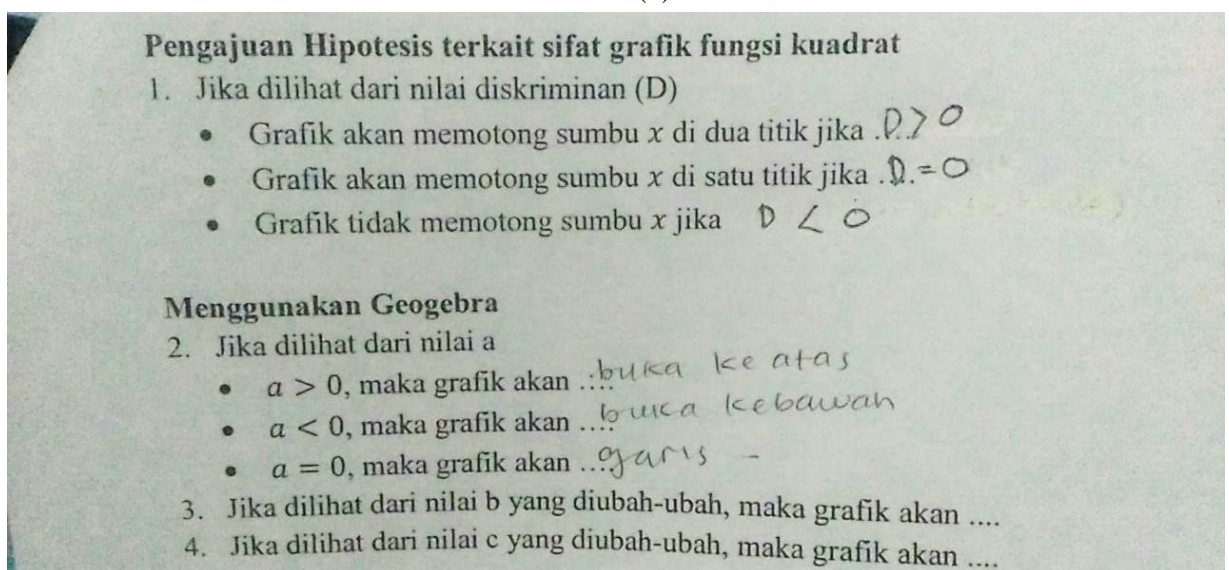 Pengajuan Hipotesis terkait sifat grafik fungsi kuadrat
1. Jika dilihat dari nilai diskriminan (D)
• Grafik akan memotong sumbu x di dua titik jika .D.> 0
• Grafik akan memotong sumbu x di satu titik jika .D.= 0
• Grafik tidak memotong sumbu x jika D < 0
Menggunakan Geogebra
2. Jika dilihat dari nilai a
• a > 0, maka grafik akan .... buka ke atas
• a < 0, maka grafik akan .... buka kebawah
• a = 0, maka grafik akan .... garis -
3. Jika dilihat dari nilai b yang diubah-ubah, maka grafik akan ....
4. Jika dilihat dari nilai c yang diubah-ubah, maka grafik akan ....